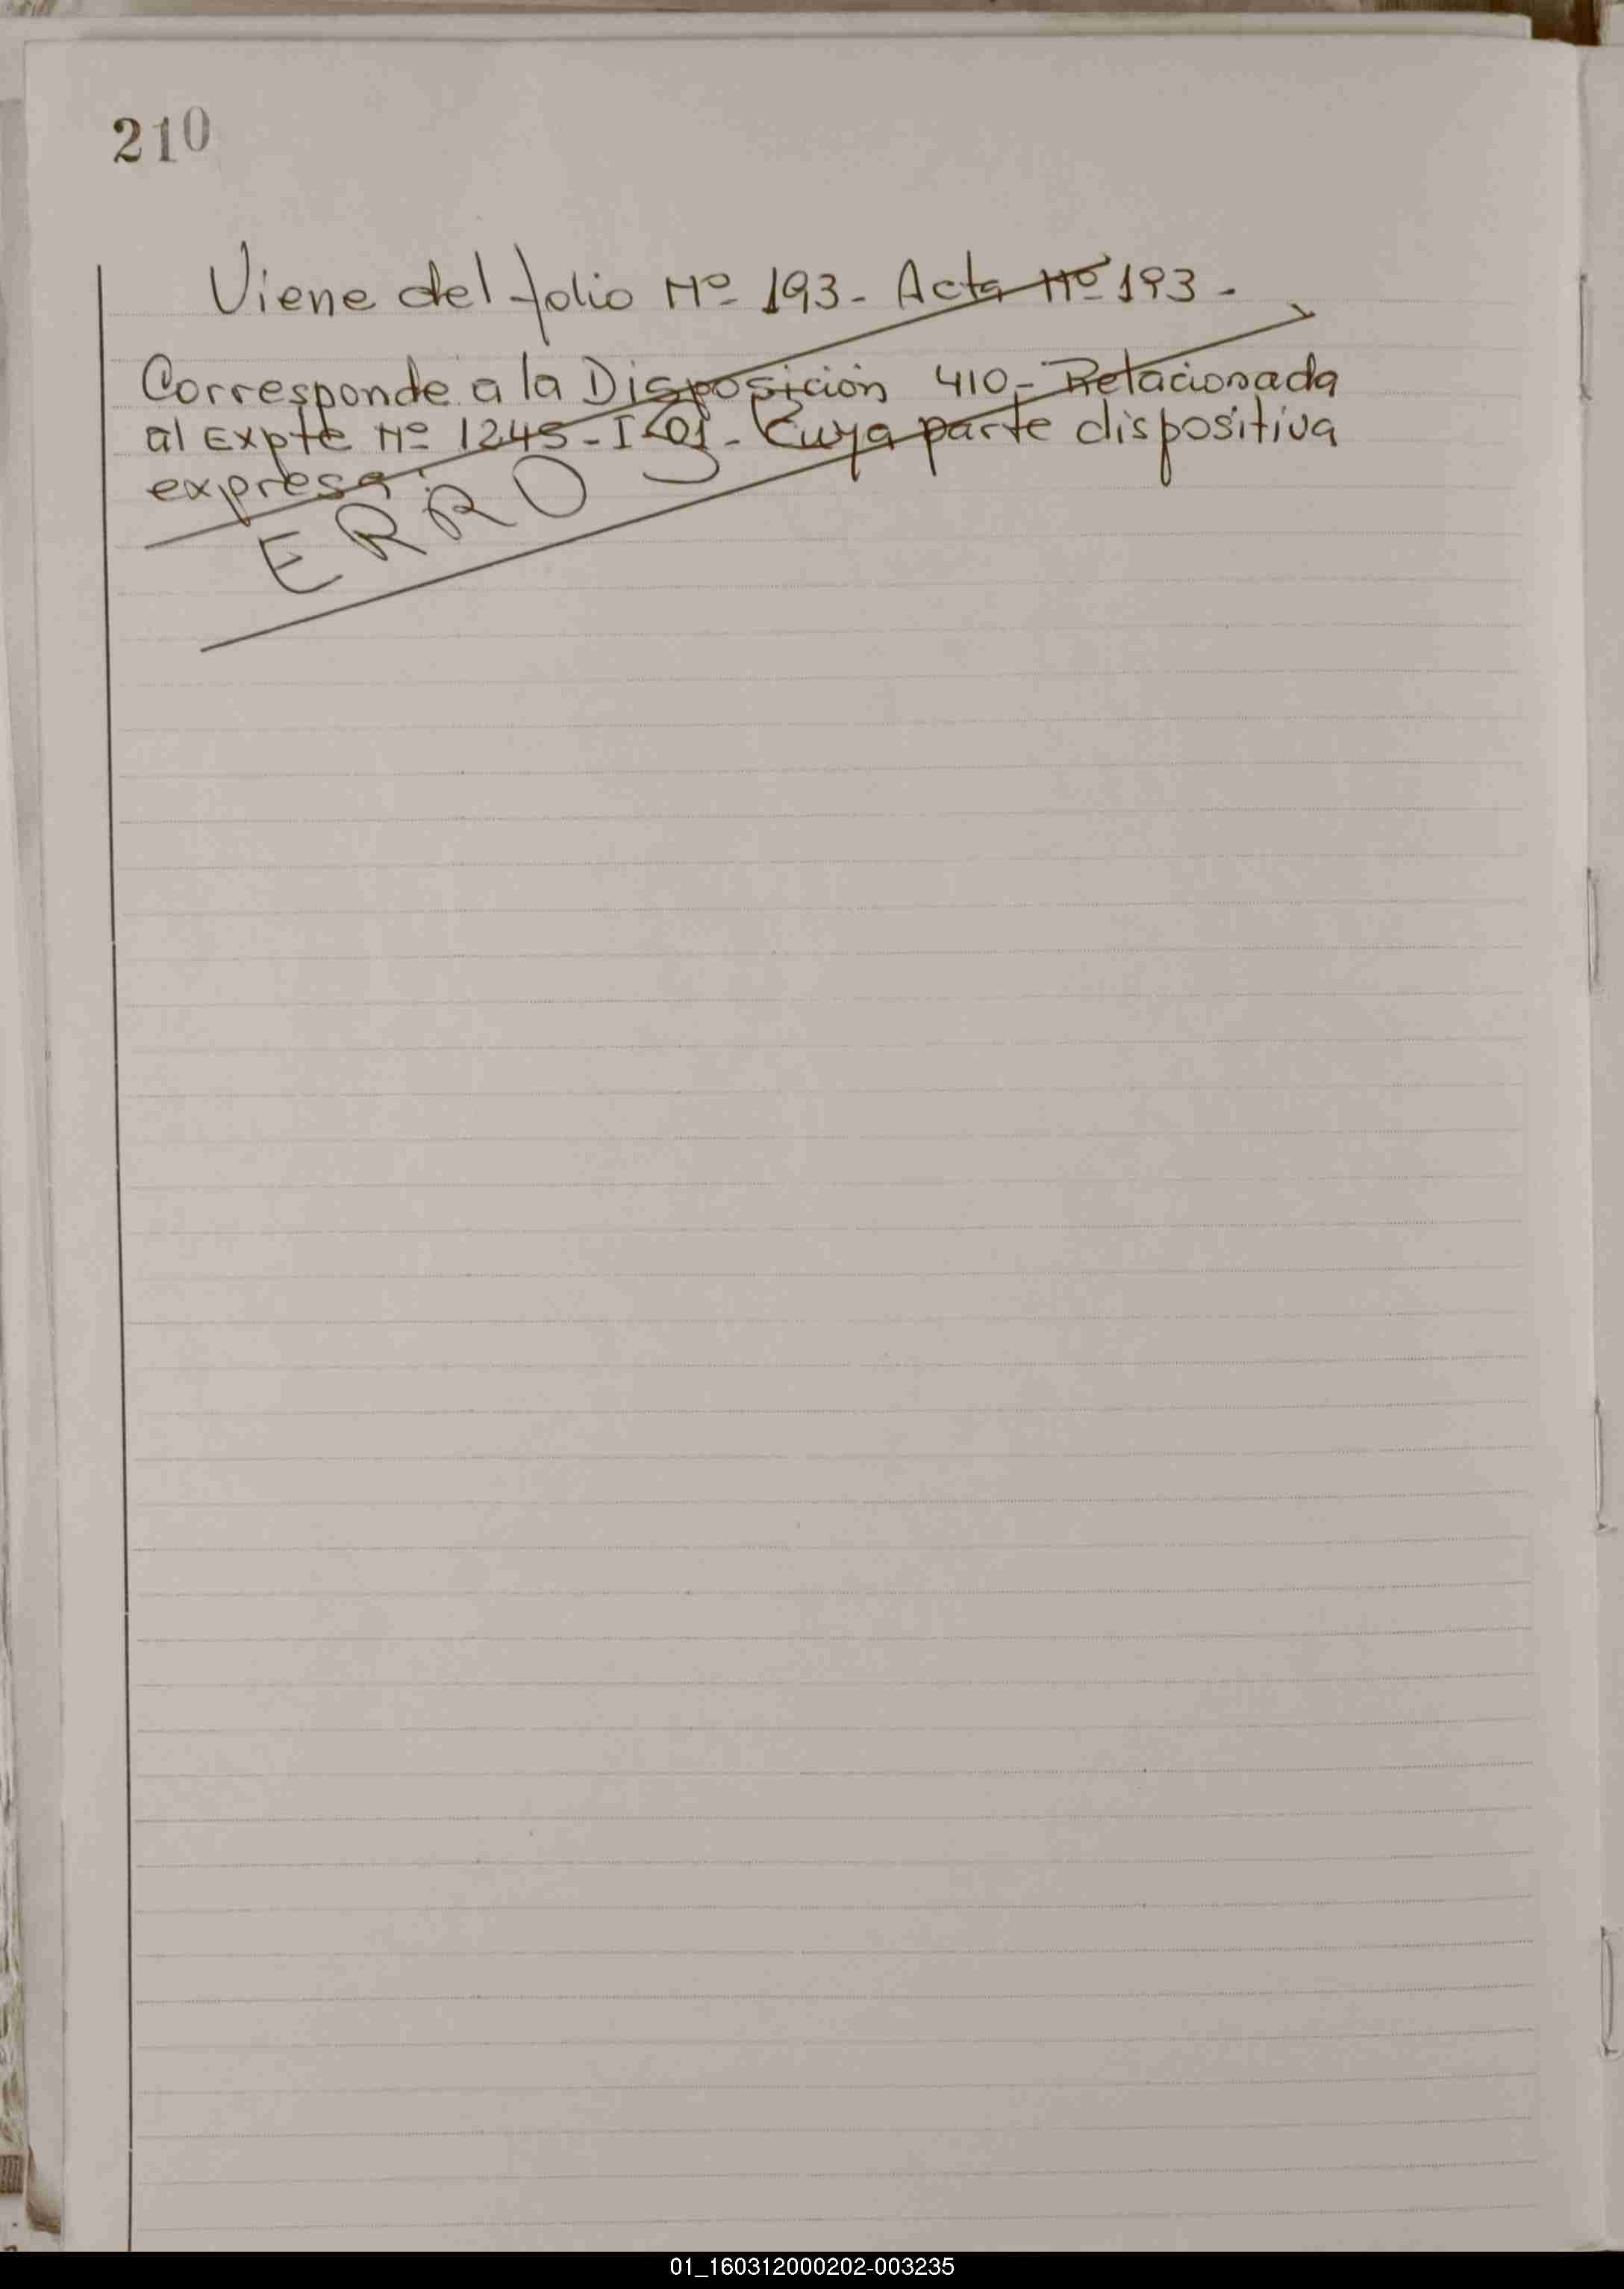 210
Viene del folio Nº 193 - Acta Nº 193 -
Corresponde a la Disposición 410 - Relacionada
al Expte Nº 1245 - I - 01 - Cuya parte dispositiva
expresa:
ERRO
01_160312000202-003235